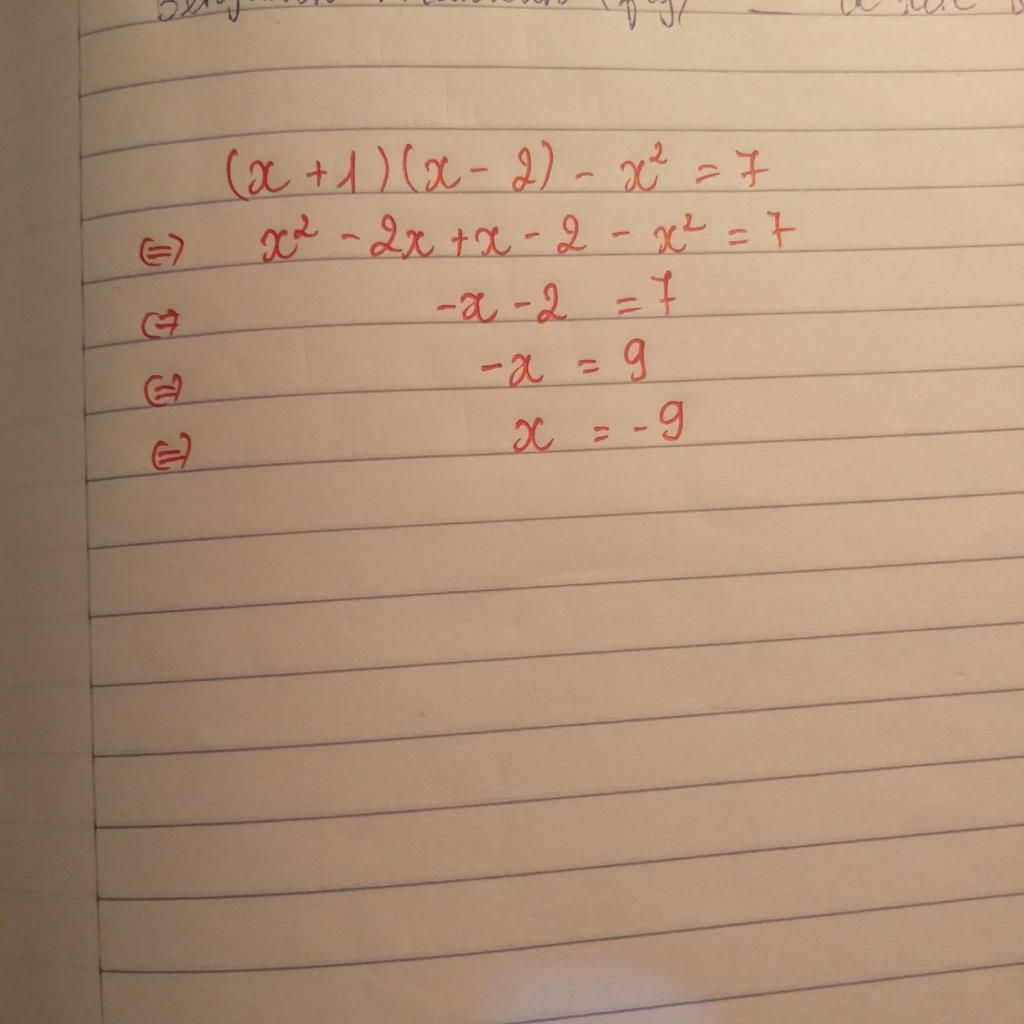 (x + 1)(x - 2) - x² = 7
⇔ x² - 2x + x - 2 - x² = 7
⇔ -x - 2 = 7
⇔ -x = 9
⇔ x = -9